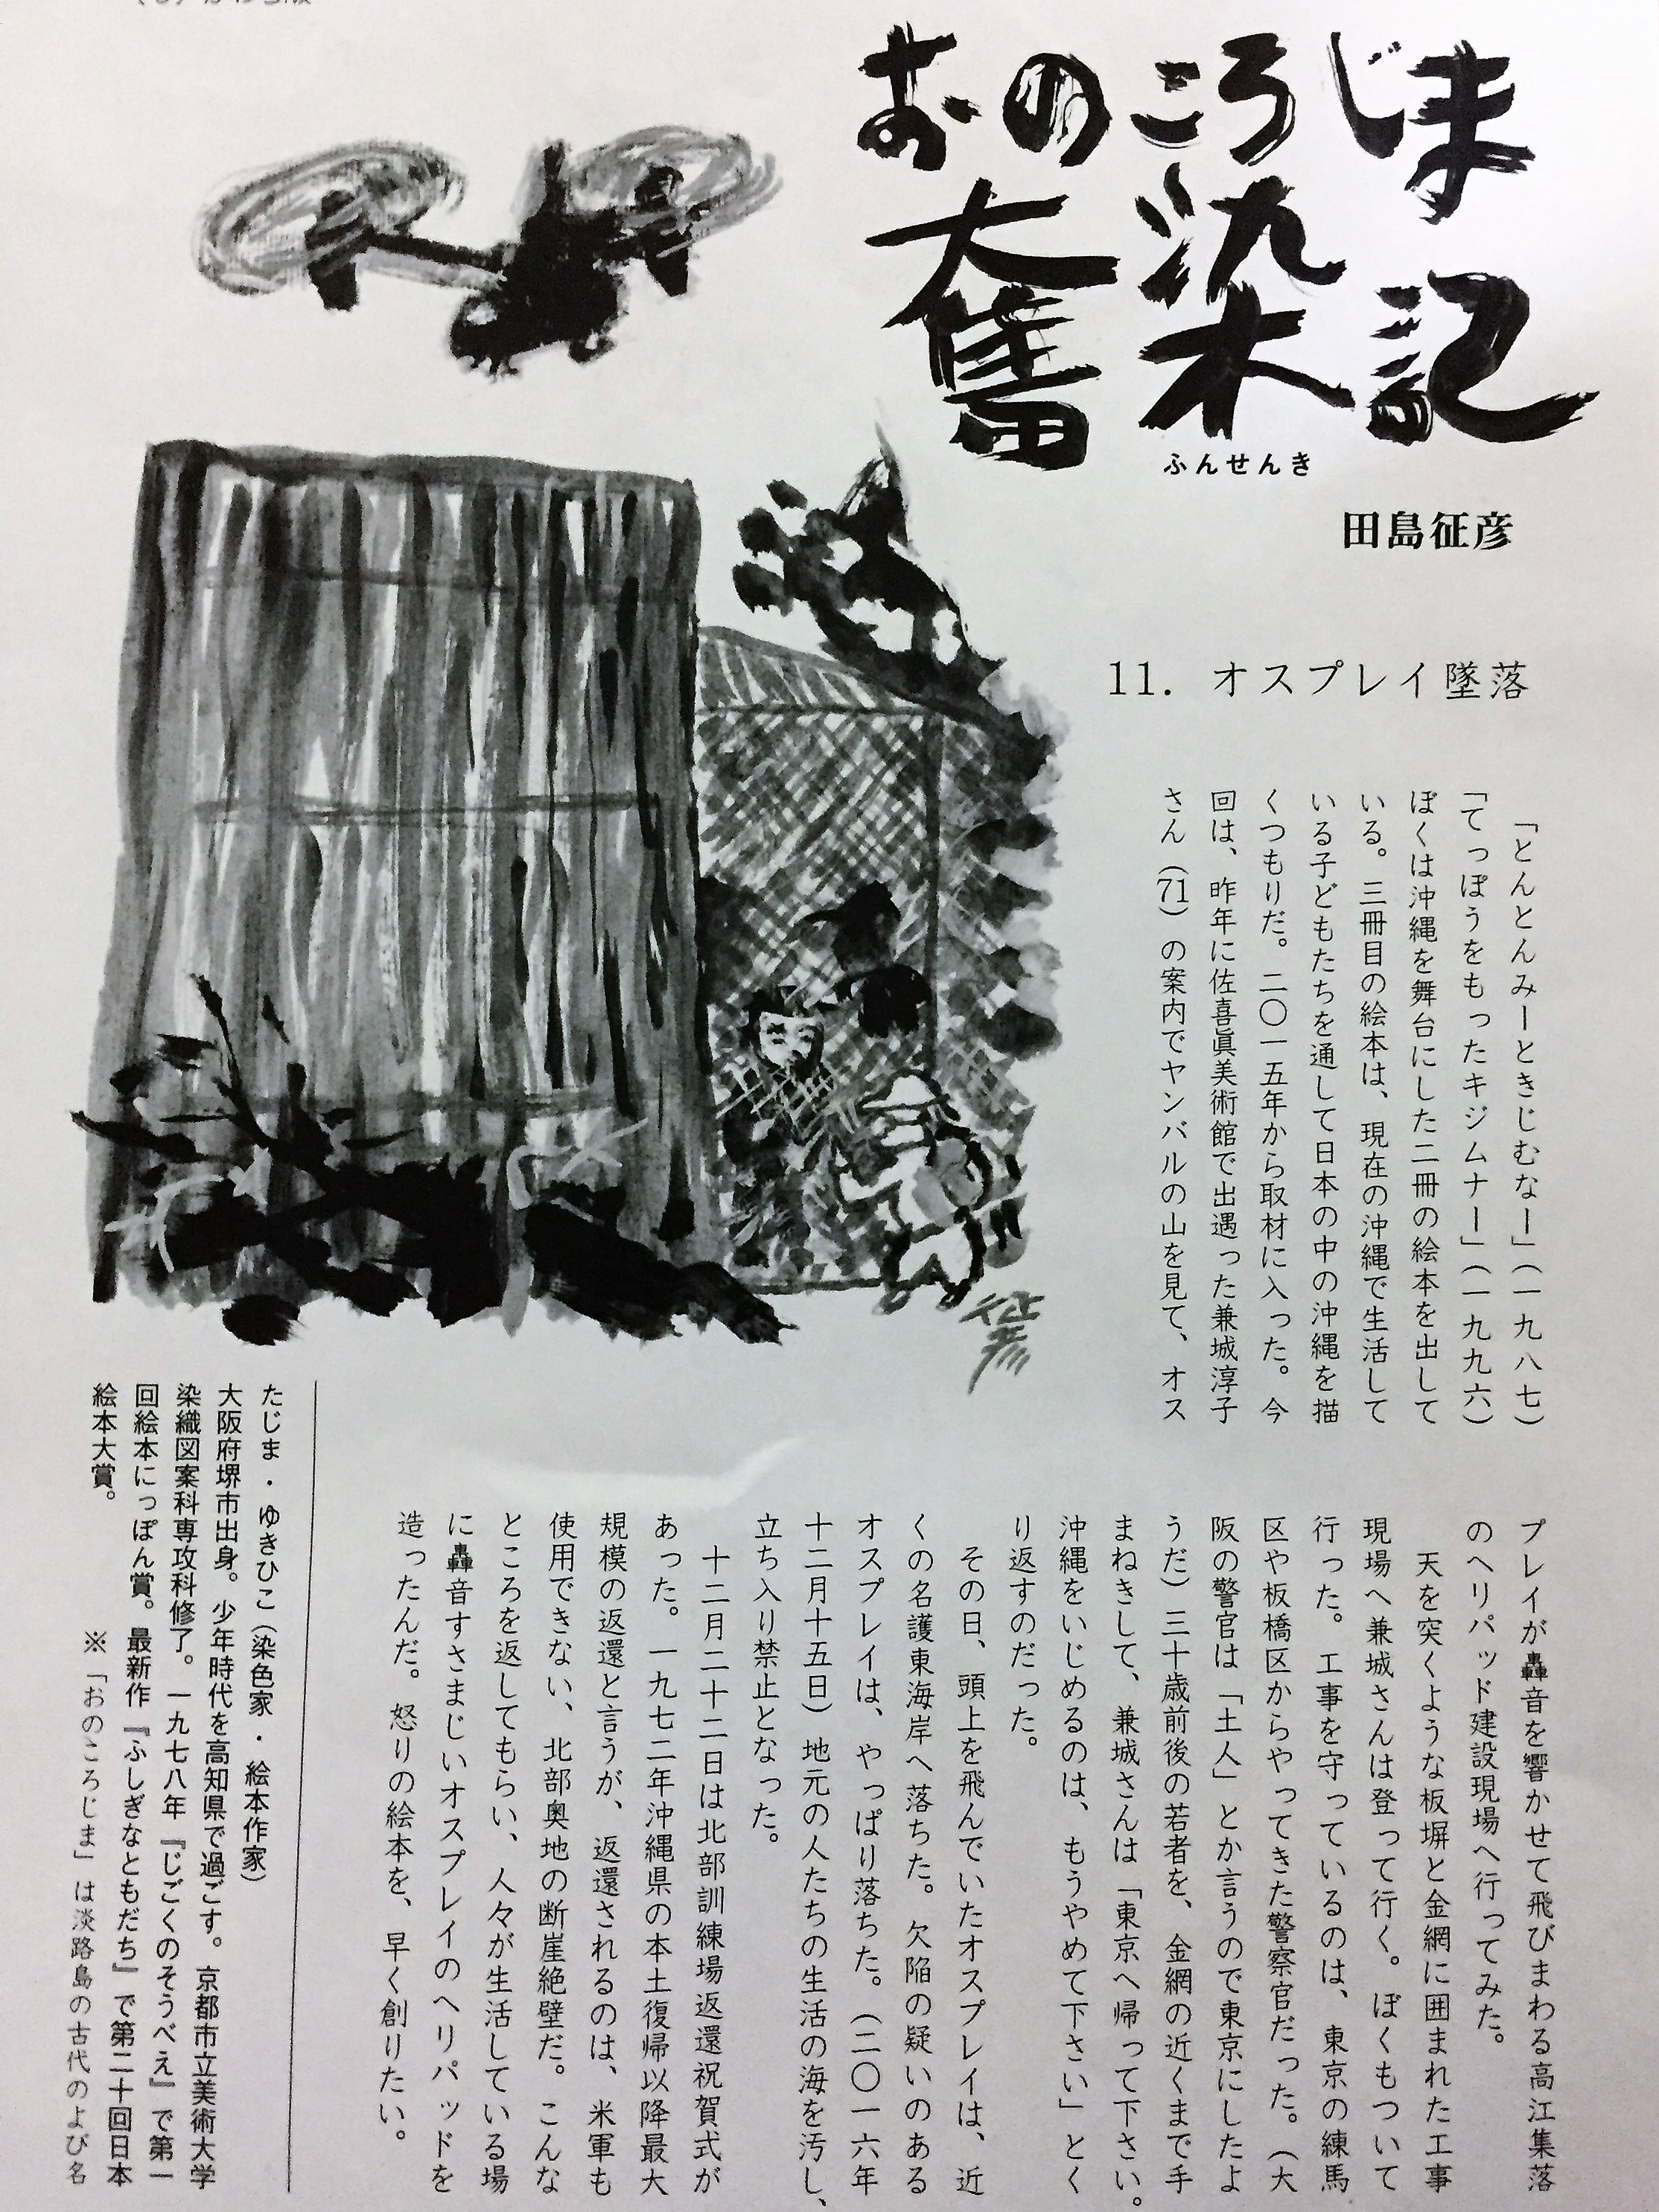 おのころじま
奮染記
ふんせんき
田島征彦
11. オスプレイ墜落
「とんとんみーときじむなー」(一九八七)
「てっぽうをもったキジムナー」(一九九六)
ぼくは沖縄を舞台にした二冊の絵本を出して
いる。三冊目の絵本は、現在の沖縄で生活して
いる子どもたちを通して日本の中の沖縄を描
くつもりだ。二〇一五年から取材に入った。今
回は、昨年に佐喜眞美術館で出遇った兼城淳子
さん(71)の案内でヤンバルの山を見て、オス
プレイが轟音を響かせて飛びまわる高江集落
のヘリパッド建設現場へ行ってみた。
天を突くような板塀と金網に囲まれた工事
現場へ兼城さんは登って行く。ぼくもついて
行った。工事を守っているのは、東京の練馬
区や板橋区からやってきた警察官だった。(大
阪の警官は「土人」とか言うので東京にしたよ
うだ)三十歳前後の若者を、金網の近くまで手
まねきして、兼城さんは「東京へ帰って下さい。
沖縄をいじめるのは、もうやめて下さい」とく
り返すのだった。
その日、頭上を飛んでいたオスプレイは、近
くの名護東海岸へ落ちた。欠陥の疑いのある
オスプレイは、やっぱり落ちた。(二〇一六年
十二月十五日)地元の人たちの生活の海を汚し、
立ち入り禁止となった。
十二月二十二日は北部訓練場返還祝賀式が
あった。一九七二年沖縄県の本土復帰以降最大
規模の返還と言うが、返還されるのは、米軍も
使用できない、北部奥地の断崖絶壁だ。こんな
ところを返してもらい、人々が生活している場
に轟音すさまじいオスプレイのヘリパッドを
造ったんだ。怒りの絵本を、早く創りたい。
征彦
たじま・ゆきひこ(染色家・絵本作家)
大阪府堺市出身。少年時代を高知県で過ごす。京都市立美術大学
染織図案科専攻科修了。一九七八年『じごくのそうべえ』で第一
回絵本にっぽん賞。最新作『ふしぎなともだち』で第二十回日本
絵本大賞。
※「おのころじま」は淡路島の古代のよび名